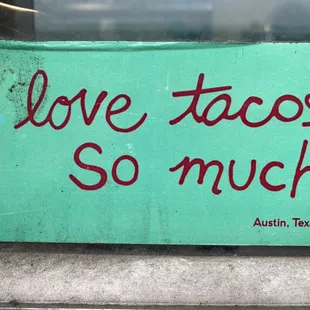 love tacos
so much
Austin, Tex